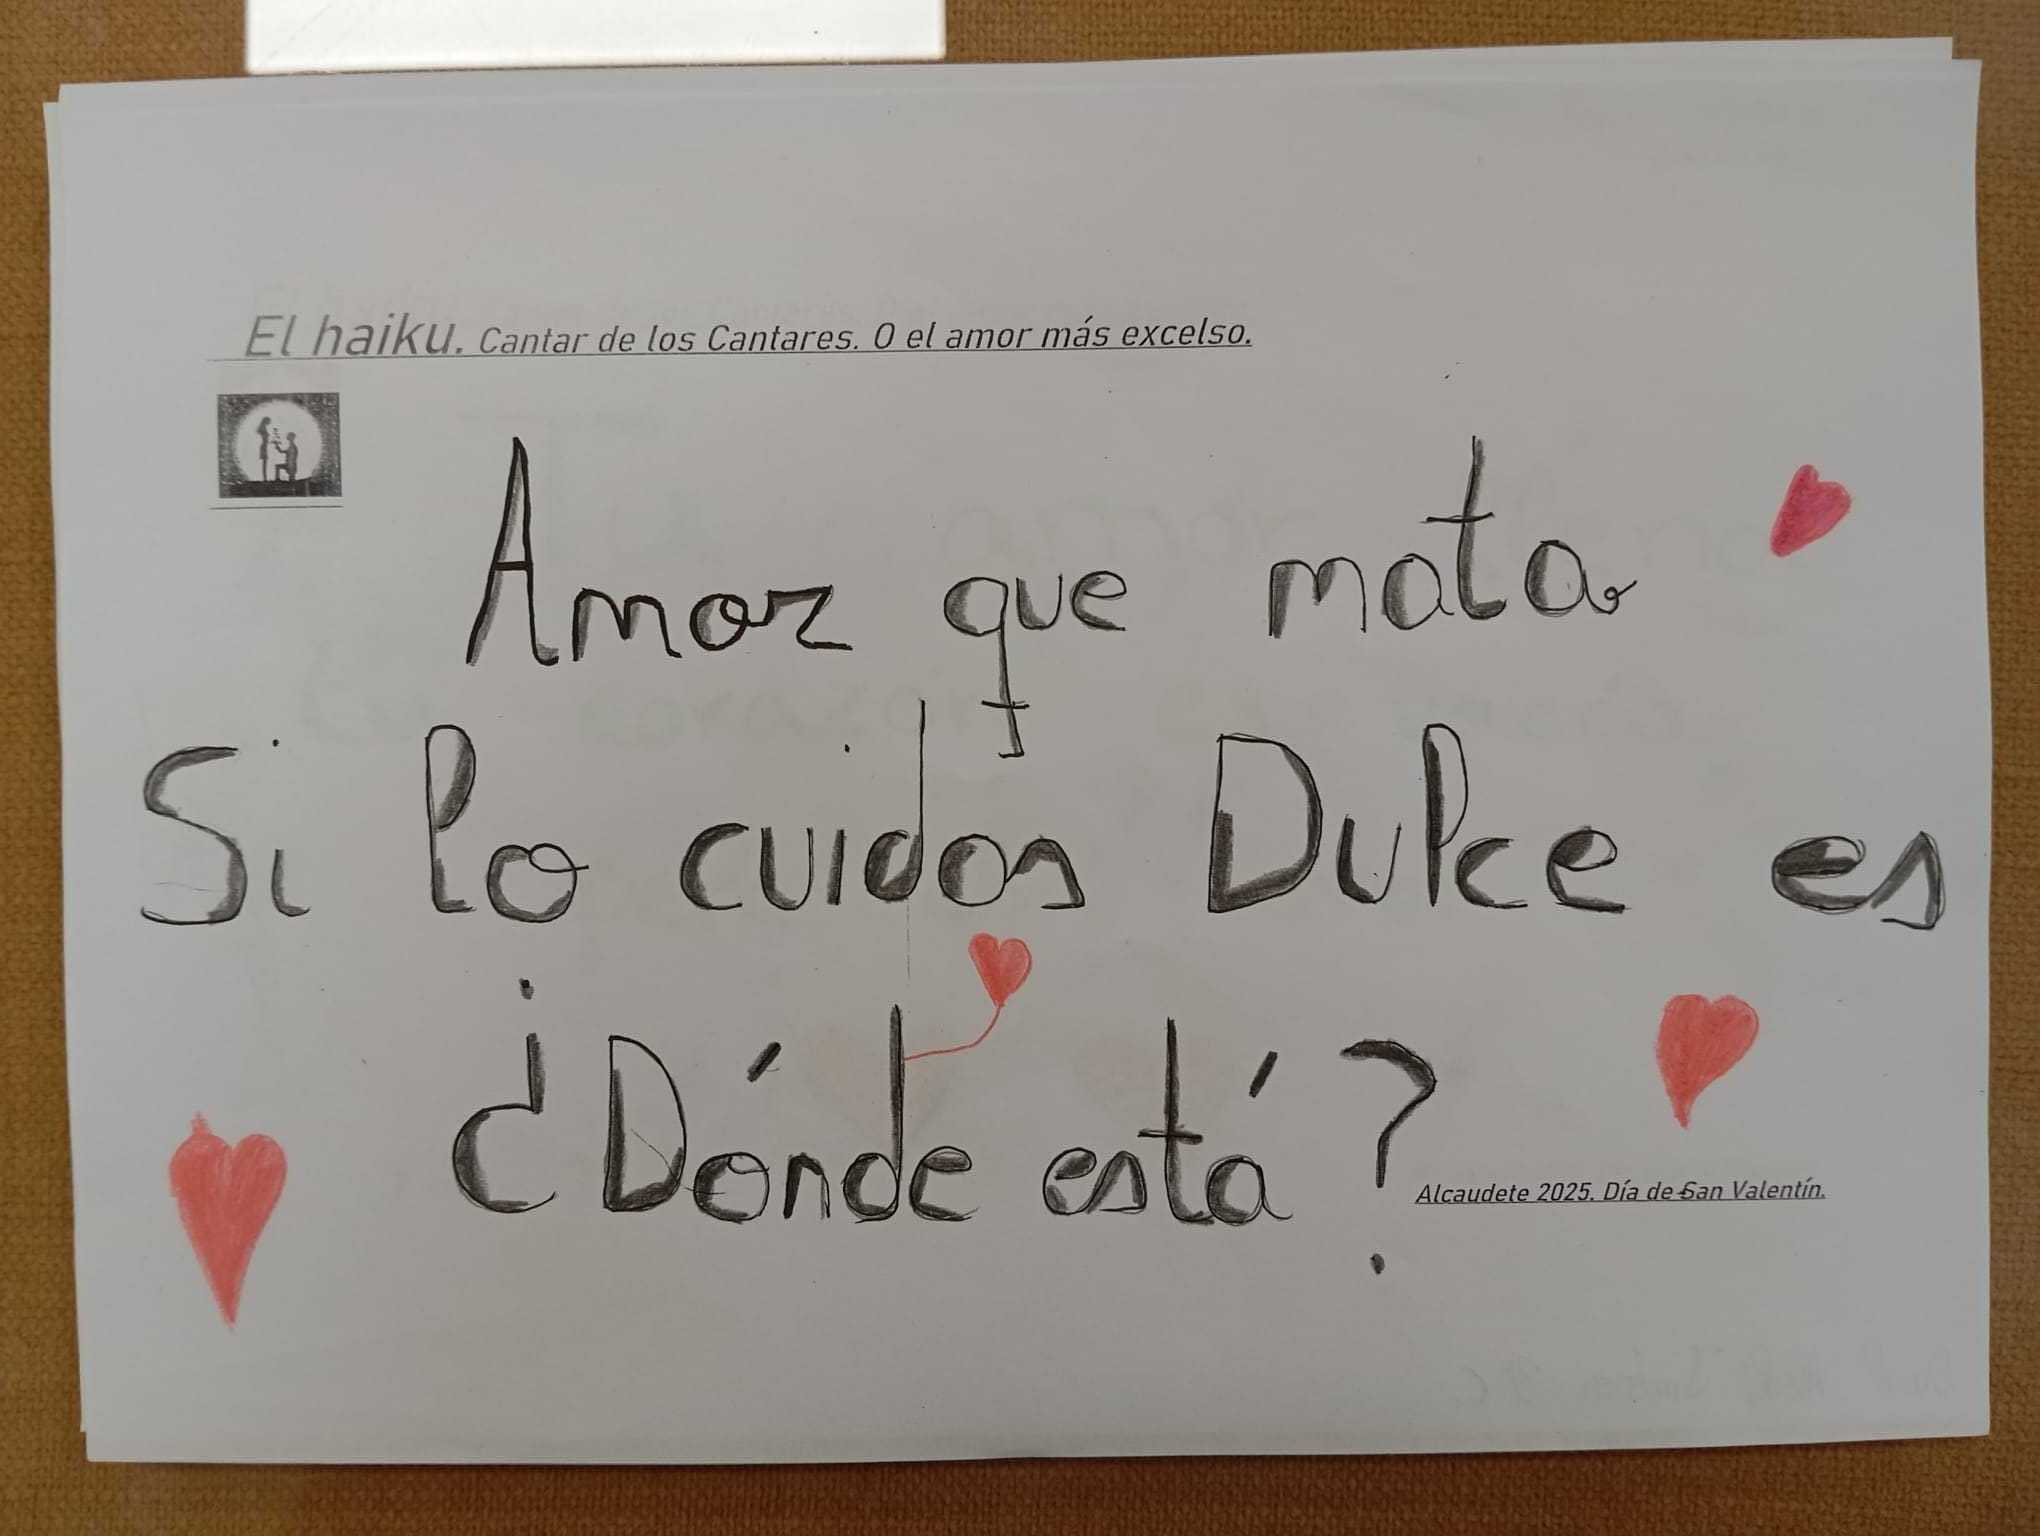 El haiku. Cantar de los Cantares. O el amor más excelso.
Amor que mata
Si lo cuidas Dulce es
¿Dónde está?
Alcaudete 2025. Día de San Valentín.